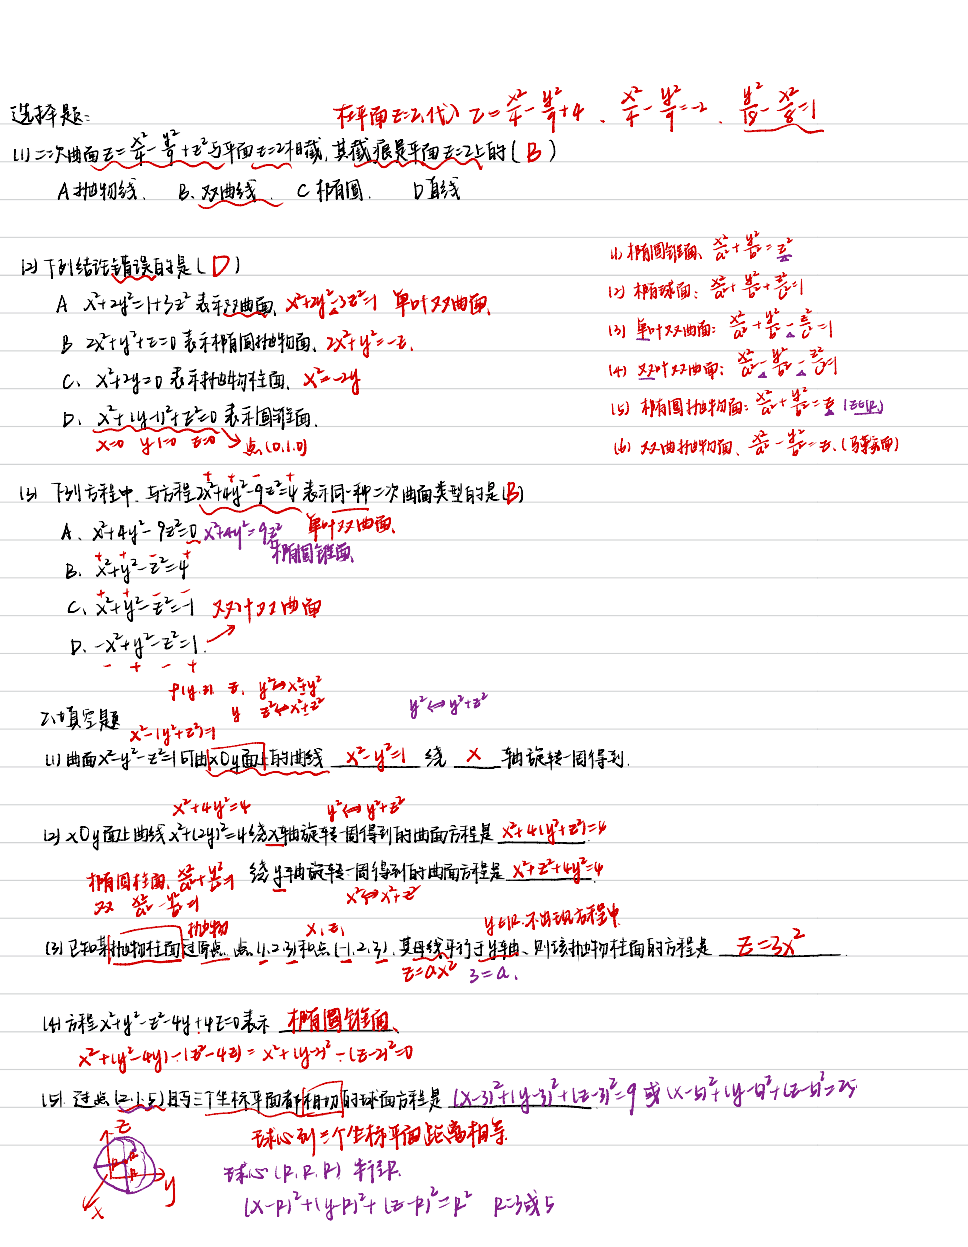 选择题:
在平面z=2, 代入 z=x²/4-y²/9+4 、 x²/4-y²/9=-2 、 y²/18-x²/8=1
(1) 二次曲面z=x²/4-y²/9+z²与平面z=2相截,其截痕是平面z=2上的( B )
A 抛物线、 B、双曲线、 C 椭圆、 D 直线
(2) 下列结论错误的是( D )
A x²+2y²=1+3z² 表示双曲面、 x²+2y²-3z²=1 单叶双曲面、
B 2x²+y²+z=0 表示椭圆抛物面、 2x²+y²=-z、
C、 x²+2y=0 表示抛物柱面、 x²=-2y
D、 x²+(y-1)²+z²=0 表示圆锥面、
x=0 y-1=0 z=0 → 点(0,1,0)
(1) 椭圆锥面、 x²/a²+y²/b²=z²
(2) 椭球面: x²/a²+y²/b²+z²/c²=1
(3) 单叶双曲面: x²/a²+y²/b²-z²/c²=1
(4) 双叶双曲面: x²/a²-y²/b²-z²/c²=1
(5) 椭圆抛物面: x²/a²+y²/b²=z (z∈R)
(6) 双曲抛物面、 x²/a²-y²/b²=z、(马鞍面)
(3) 下列方程中、与方程2x²+4y²-9z²=4 表示同一种二次曲面类型的是(B)
+ + - +
A、 x²+4y²-9z²=0 x²+4y²=9z² 单叶双曲面、
椭圆锥面、
+ + - +
B、 x²+y²-z²=4
+ + - -
C、 x²+y²-z²=-1 双叶双曲面
D、 -x²+y²-z²=1
- + - +
f(y,z) z、 y²↔x²+y²
y z²↔x²+z²
y²↔y²+z²
二、填空题
x²-(y²+z²)=1
(1) 曲面x²-y²-z²=1可由xOy面上的曲线 x²-y²=1 绕 x 轴旋转一周得到.
x²+4y²=4 y²↔y²+z²
(2) xOy面上曲线x²+(2y)²=4绕x轴旋转一周得到的曲面方程是 x²+4(y²+z²)=4
绕y轴旋转一周得到的曲面方程是 x²+z²+4y²=4
x²↔x²+z²
椭圆柱面、x²/a²+y²/b²=1
双 x²/a²-y²/b²=1
抛物 x,z, y∈R、不出现方程中
(3) 已知某抛物柱面过原点、点(1,2,3)和点(-1,2,3)、其母线平行于y轴、则该抛物柱面的方程是 z=3x²
z=ax² 3=a、
(4) 方程x²+y²-z²-4y+4z=0表示 椭圆锥面、
x²+(y²-4y)-(z²-4z)=x²+(y-2)²-(z-2)²=0
(5) 过点(2,1,5)且与三个坐标平面都相切的球面方程是 (x-3)²+(y-3)²+(z-3)²=9 或 (x-5)²+(y-5)²+(z-5)²=25
球心到三个坐标平面距离相等、
z
x
y
球心(R,R,R) 半径R
(x-R)²+(y-R)²+(z-R)²=R² R=3或5